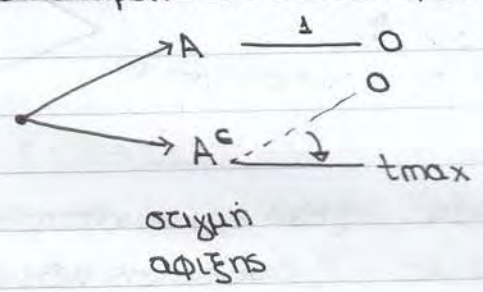 A 1 0
0
Aᶜ tmax
στιγμή
αφιξης